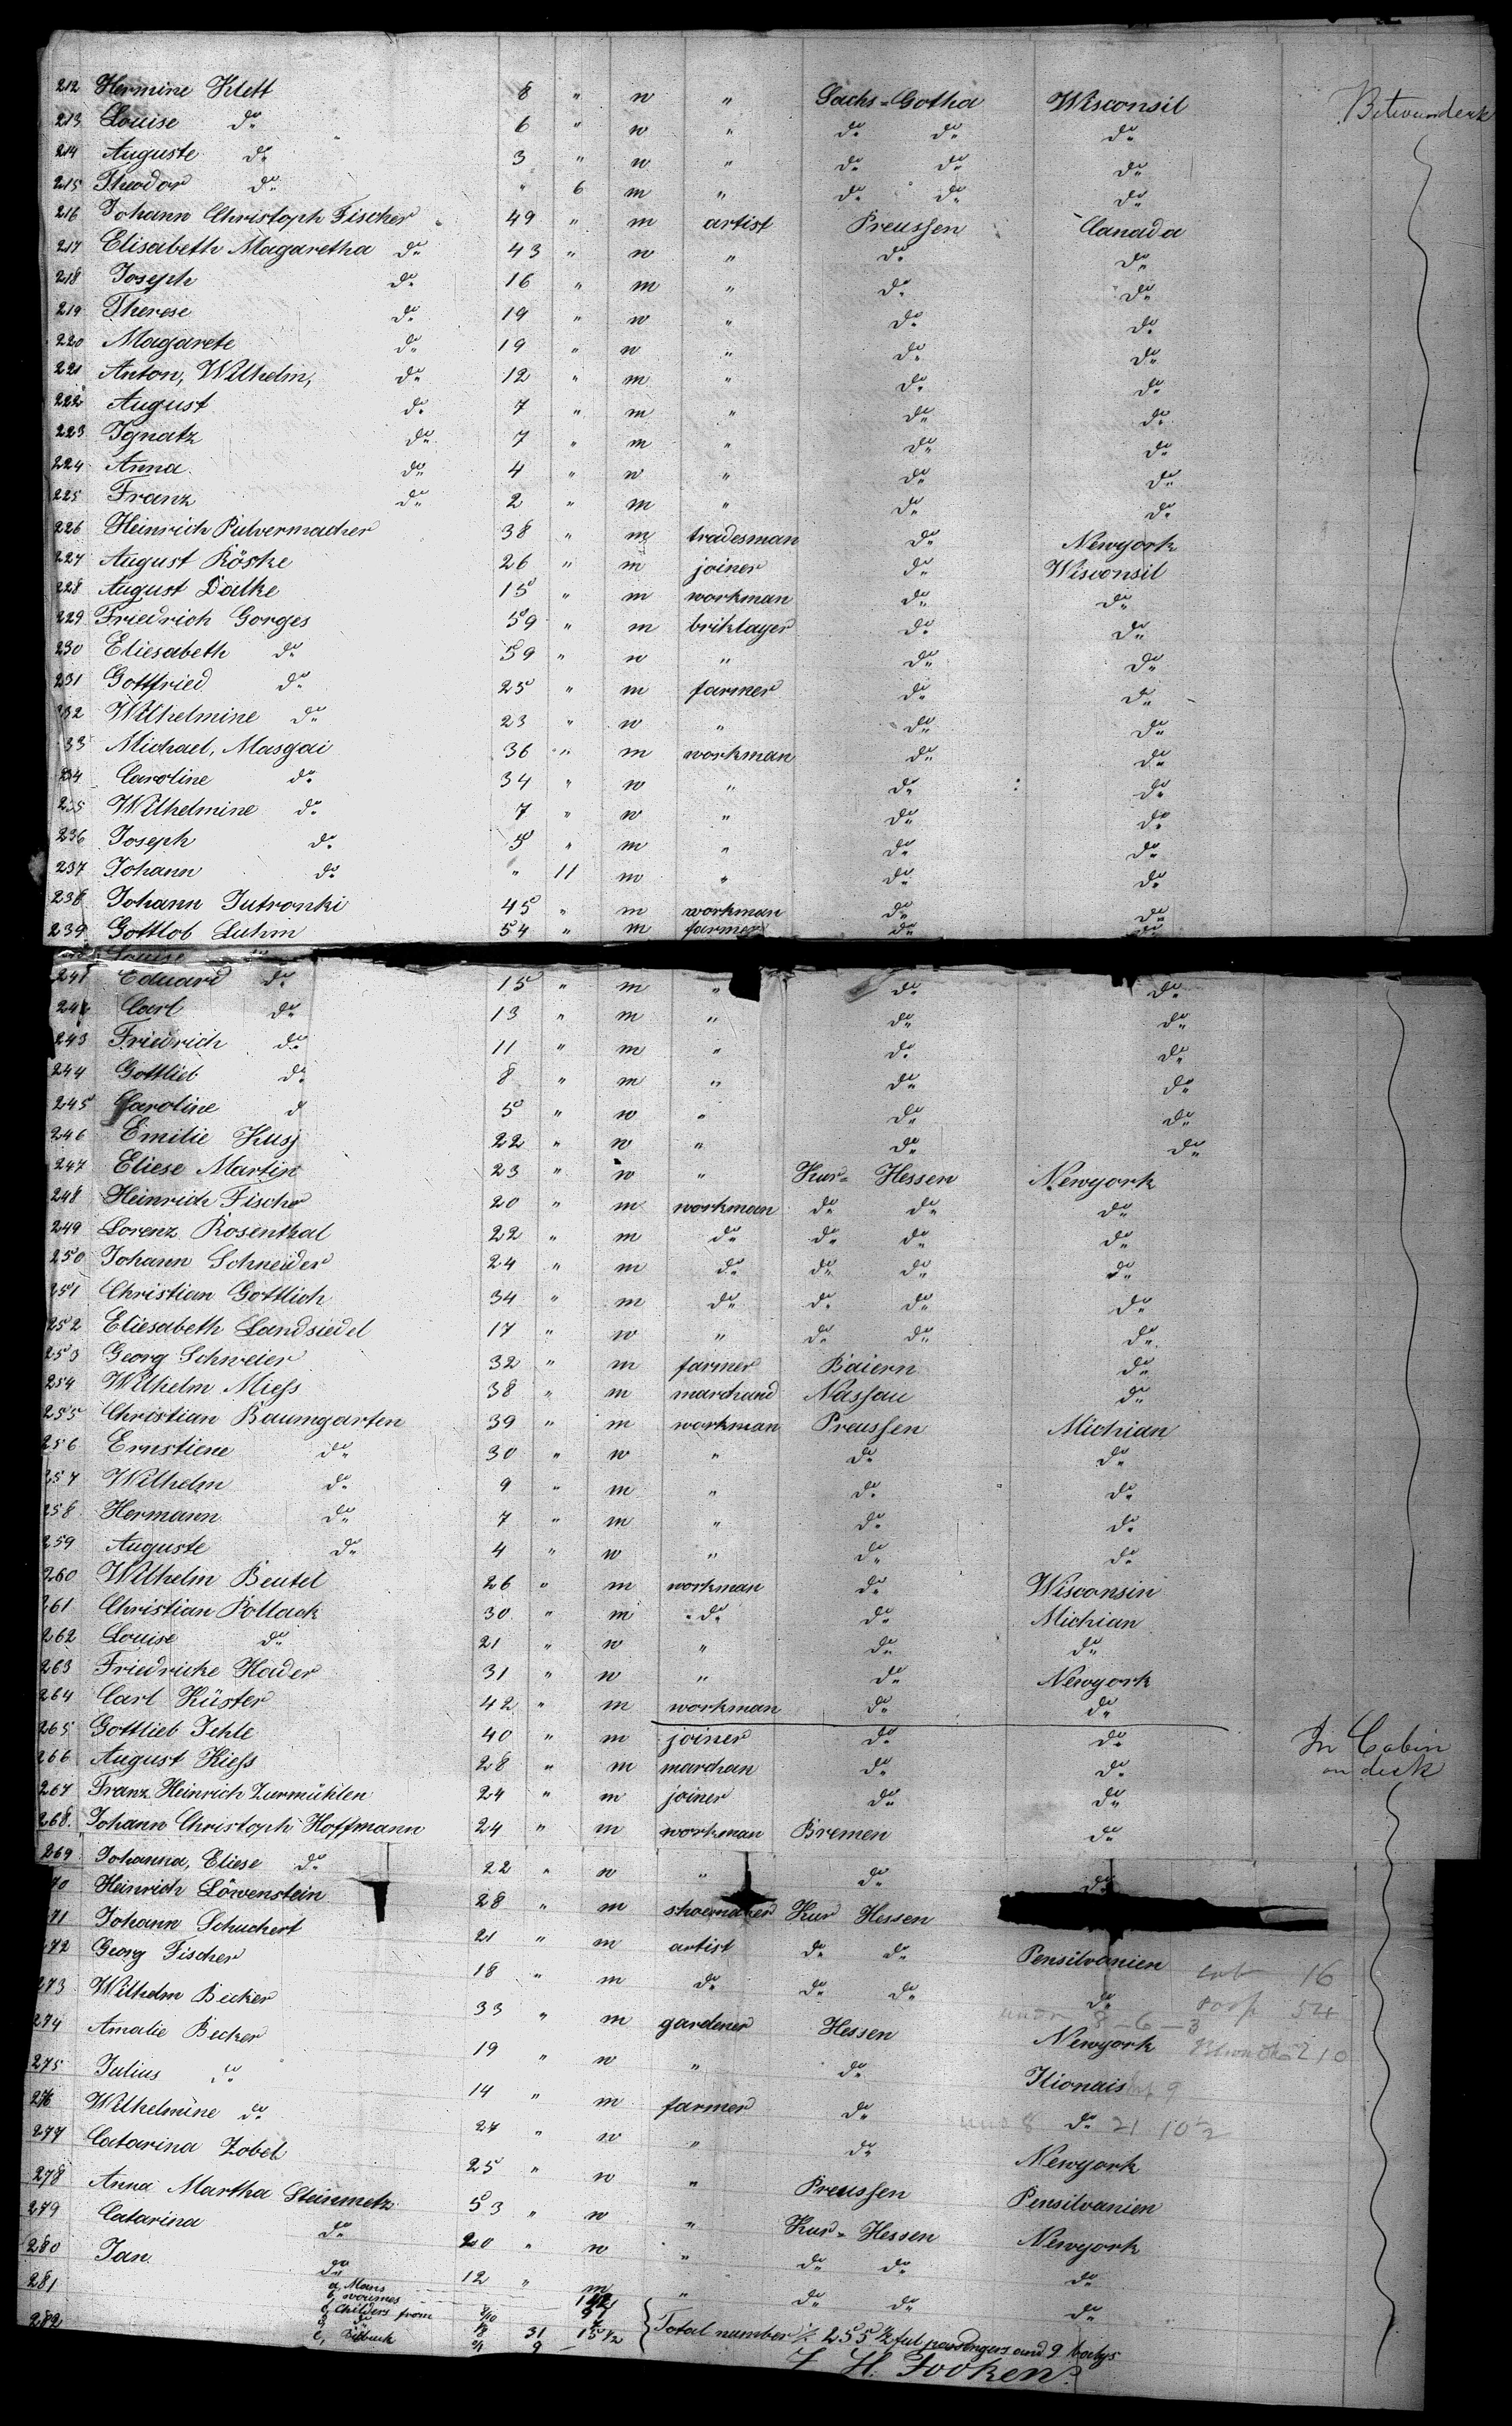 212 Hermine Klett 8 " w " Sachs-Gotha Wisconsil Betweendeck
213 Louise do 6 " w " do do do
214 Auguste do 3 " w " do do do
215 Theodor do " 6 m " do do do
216 Johann Christoph Fischer 49 " m artist Preussen Canada
217 Elisabeth Magaretha do 43 " w " do do
218 Joseph do 16 " m " do do
219 Therese do 19 " w " do do
220 Magarete do 19 " w " do do
221 Anton, Wilhelm, do 12 " m " do do
222 August do 7 " m " do do
223 Ignatz do 7 " m " do do
224 Anna do 4 " w " do do
225 Franz do 2 " m " do do
226 Heinrich Pulvermacher 38 " m tradesman do Newyork
227 August Röske 26 " m joiner do Wisconsil
228 August Dalke 15 " m workman do do
229 Friedrich Gorges 59 " m briklayer do do
230 Eliesabeth do 59 " w " do do
231 Gottfried do 25 " m farmer do do
232 Wilhelmine do 23 " w " do do
33 Michael, Masgai 36 " m workman do do
234 Caroline do 34 " w " do do
235 Wilhelmine do 7 " w " do do
236 Joseph do 5 " m " do do
237 Johann do " 11 m " do do
238 Johann Jutronki 45 " m workman do do
239 Gottlob Luhm 54 " m farmer do do
Louise
241 Eduard do 15 " m " do do
242 Carl do 13 " m " do do
243 Friedrich do 11 " m " do do
244 Gottlieb do 8 " m " do do
245 Caroline d 5 " w " do do
246 Emilie Kusj 22 " w " do do
247 Eliese Martin 23 " w " Kur- Hessen Newyork
248 Heinrich Fischer 20 " m workman do do do
249 Lorenz Rosenthal 22 " m do do do do
250 Johann Schneider 24 " m do do do do
251 Christian Gottlich 34 " m do do do do
252 Eliesabeth Landsiedel 17 " w " do do do
253 Georg Schweier 32 " m farmer Baiern do
254 Wilhelm Miess 38 " m marchand Nassau do
255 Christian Baumgarten 39 " m workman Preussen Michian
256 Ernstiene do 30 " w " do do
257 Wilhelm do 9 " m " do do
258 Hermann do 7 " m " do do
259 Auguste do 4 " w " do do
260 Wilhelm Beutel 26 " m workman do Wisconsin
261 Christian Pollack 30 " m do do Michian
262 Louise do 21 " w " do do
263 Friedricke Hader 31 " w " do Newyork
264 Carl Küster 42 " m workman do do
265 Gottlieb Jehle 40 " m joiner do do In Cabin
266 August Kiess 28 " m marchan do do on deck
267 Franz Heinrich Zurmühlen 24 " m joiner do do
268. Johann Christoph Hoffmann 24 " m workman Bremen do
269 Johanna, Eliese do 22 " w " do do
70 Heinrich Löwenstein 28 " m shoemaker Kur Hessen
71 Johann Schuchert 21 " m artist do do Pensilvanien 16
272 Georg Fischer 18 " m do do do do 54
273 Wilhelm Becker 33 " m gardener Hessen Newyork 210
274 Amalie Becker 19 " w " do Ilionais 9
275 Julius do 14 " m farmer do do 21 10½
276 Wilhelmine do 24 " w " do Newyork
277 Catarina Zobel 25 " w " Preussen Pensilvanien
278 Anna Martha Steinmetz 53 " w " Kur- Hessen Newyork
279 Catarina do 20 " w " do do do
280 Jan do 12 " m " do do do
281 a, Mans
b, woumes
c, Childers from 8/10
282 d, do 1/8 31 15½ Total number ./. 255½ ful passengers and 9 babys
e, 9
H. Fooken.